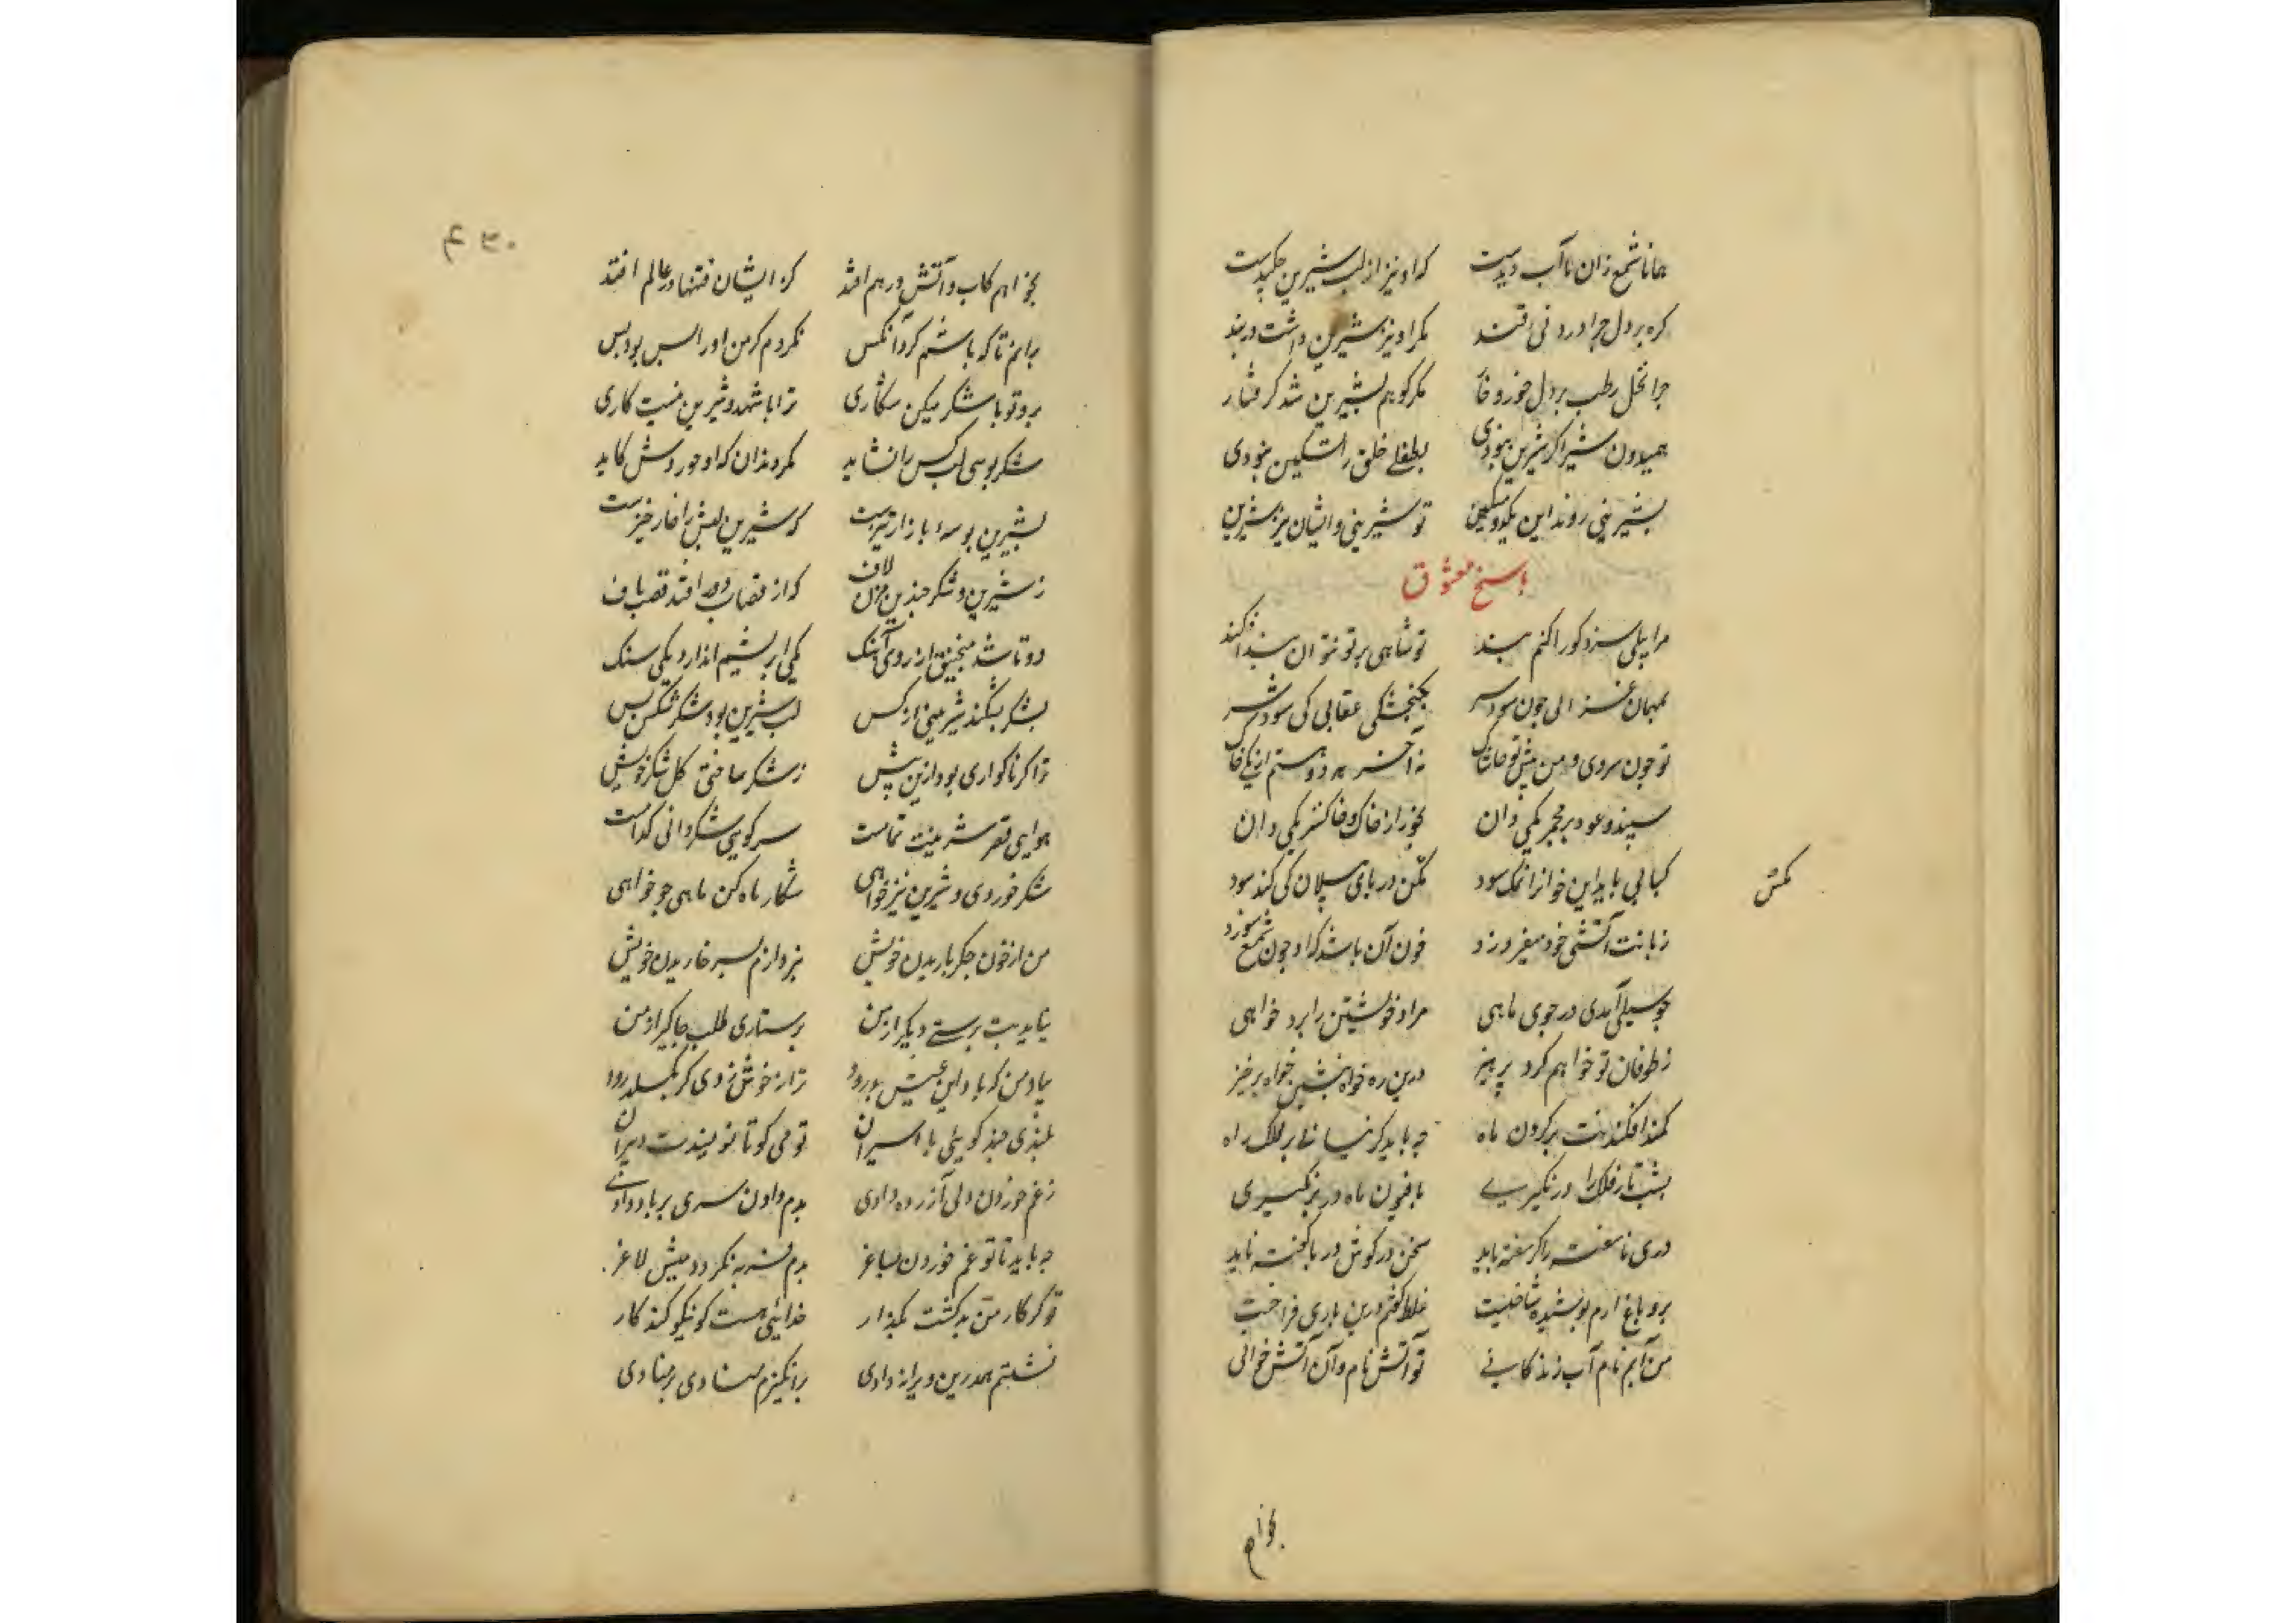 همانا شمع از آن با آب دیدست که او نیز از لب شیرین چکیدست
کره بر دل چرا دارد نی قند مکر او نیز شیرین داشت دربند
چرا نخل رطب بر دل خورد خار مکر کو هم بشیرین شد کرفتار
همیدون شیر اکر شیرین نبودی بطفلی خلق را تسکین نبودی
بشیرینی روند این یکدو مسکین تو شیرینی و ایشان نیز شیرین
پاسخ معشوق
مرا پیلی سزد کورا کنم بند تو شاهی بر تو نتوان بند افکند
بمهمان غزالی چون شود شیر بکنجشکی عقابی کی شود سیر
تو چون سروی و من پیش تو خاشاک نه آخر هر دو هستم از یکی خاک
سپند و عود بر مجمر یکی دان بخور از خاک و خاکستر یکی دان
کبابی باید این خوانرا نمک سود مکس در پای پیلان کی کند سود
مکس
زبانت آتشی خود میفروزد خون آن باشد که او چون شمع سوزد
چو سیلی آمدی در جوی ماهی مراد خویشتن را برد خواهی
ز طوفان تو خواهم کرد پرهیز درین ره خواه بنشین خواه برخیز
کمند افکندنت بر کردون ماه چه باید کر نیابی بر فلک راه
بشب تاز فلک را در نکیری بافسون ماه در بر نکیری
دری ناسفته را کر سفته باید سخن در کوش دریا کفته ناید
برو باغ ارم پوشیده شاخیست غلط کفتم درین باری فراخیست
من آبم نام آب زندکانی تو آتش نام و آن آتش جوانی
بخواهم
۴۳۰
بخواهم کاب و آتش در هم افتد کز ایشان فتنها در عالم افتد
بر انم تا که باشم کرد آنکس نکردم کز من او را بس بود بس
برو تو با شکر میکن شکاری ترا با شهد و شیرین نیست کاری
شکر بوسی لب کس را نشاید مکر دندان که او خوردش کاید
بشیرین بوسه را بازار تیزست که شیرین لبش را خار خیزست
ز شیرین و شکر چندین مزن لاف که از قصاب دور افتد قصب باف
دو تا شد منجنیق از روی آهنک یکی ابریشم اندازد یکی سنک
بشکر بشکند شیرینی از کس لب شیرین بود شکر شکن بس
ترا کر ناکواری بود ازین پیش ز شکر ساختی کلشکر خویش
هوای قصر شیرینت تمامست سر کوی شکر دانی کدامست
شکر خوردی و شیرین نیز خواهی شکار ماه کن یا ماهی چو خواهی
من از خون جکر باریدن خویش نپردازم بسر خاریدن خویش
نیاید بت پرستی دیکر از من پرستاری طلب چابکتر از من
بیاد من که باد این عیش بدرود ترا ز خوش زدی کر بکسلد رود
بلندی چند کویی با اسیران تو می کو تا نویسندت دبیران
ز غم خوردن دلی آزرده دادی بدم دادن سری بر باد دادی
چه باید با تو غم خوردن بساغر بدم فربه نکردد میش لاغر
تو کر کار من بد کشت بکذار خدایی هست کو نیکو کند کار
نشستم هم درین ویرانه وادی برانکیزم منادی بر منادی